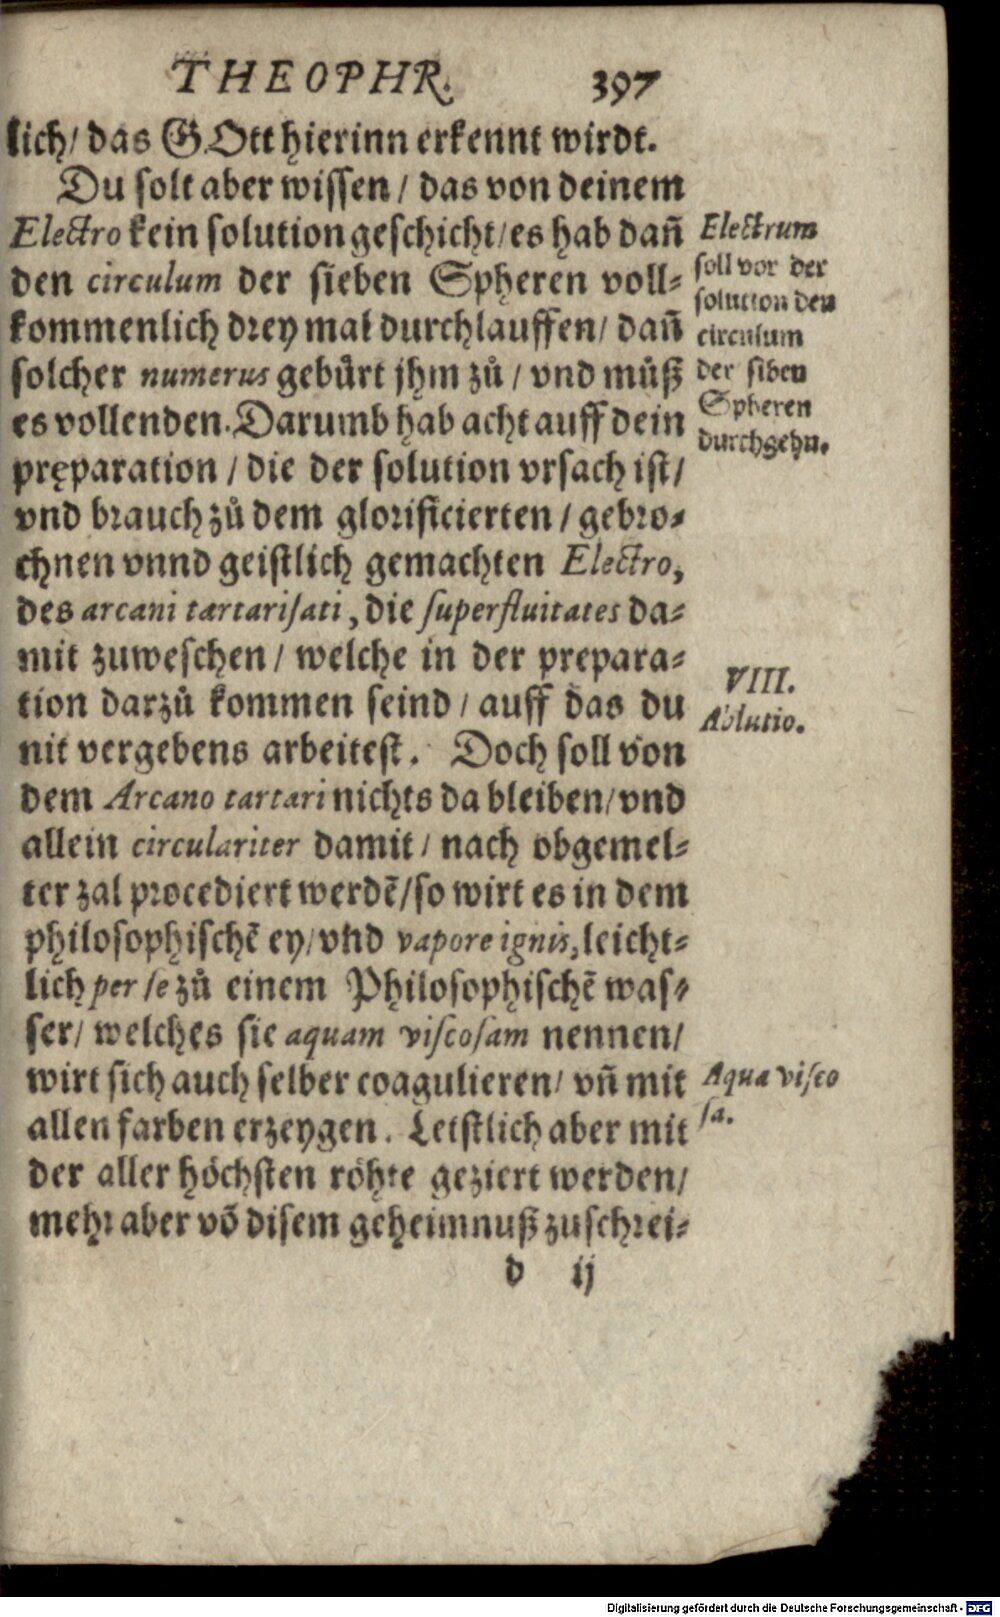 THEOPHR. 397
lich/ das GOtt hierinn erkennt wirdt.
Du solt aber wissen / das von deinem
Electro kein solution geschicht/ es hab dañ
den circulum der sieben Spheren voll-
kommenlich drey mal durchlauffen/ dañ
solcher numerus gebürt jhm zů / vnd můß
es vollenden. Darumb hab acht auff dein
pręparation / die der solution vrsach ist/
vnd brauch zů dem glorificierten / gebro-
chnen vnnd geistlich gemachten Electro,
des arcani tartarisati, die superfluitates da-
mit zuweschen / welche in der prepara-
tion darzů kommen seind / auff das du
nit vergebens arbeitest. Doch soll von
dem Arcano tartari nichts da bleiben/ vnd
allein circulariter damit / nach obgemel-
ter zal procediert werdẽ/ so wirt es in dem
philosophischẽ ey/ vnd vapore ignis, leicht-
lich per se zů einem Philosophischẽ was-
ser/ welches sie aquam viscosam nennen/
wirt sich auch selber coagulieren/ vñ mit
allen farben erzeygen. Letstlich aber mit
der aller höchsten röhte geziert werden/
mehr aber võ disem geheimnuß zuschrei-
d ij
Electrum
soll vor der
solution den
circulum
der siben
Spheren
durchgehn.
VIII.
Ablutio.
Aqua visco
sa.
Digitalisierung gefördert durch die Deutsche Forschungsgemeinschaft - DFG